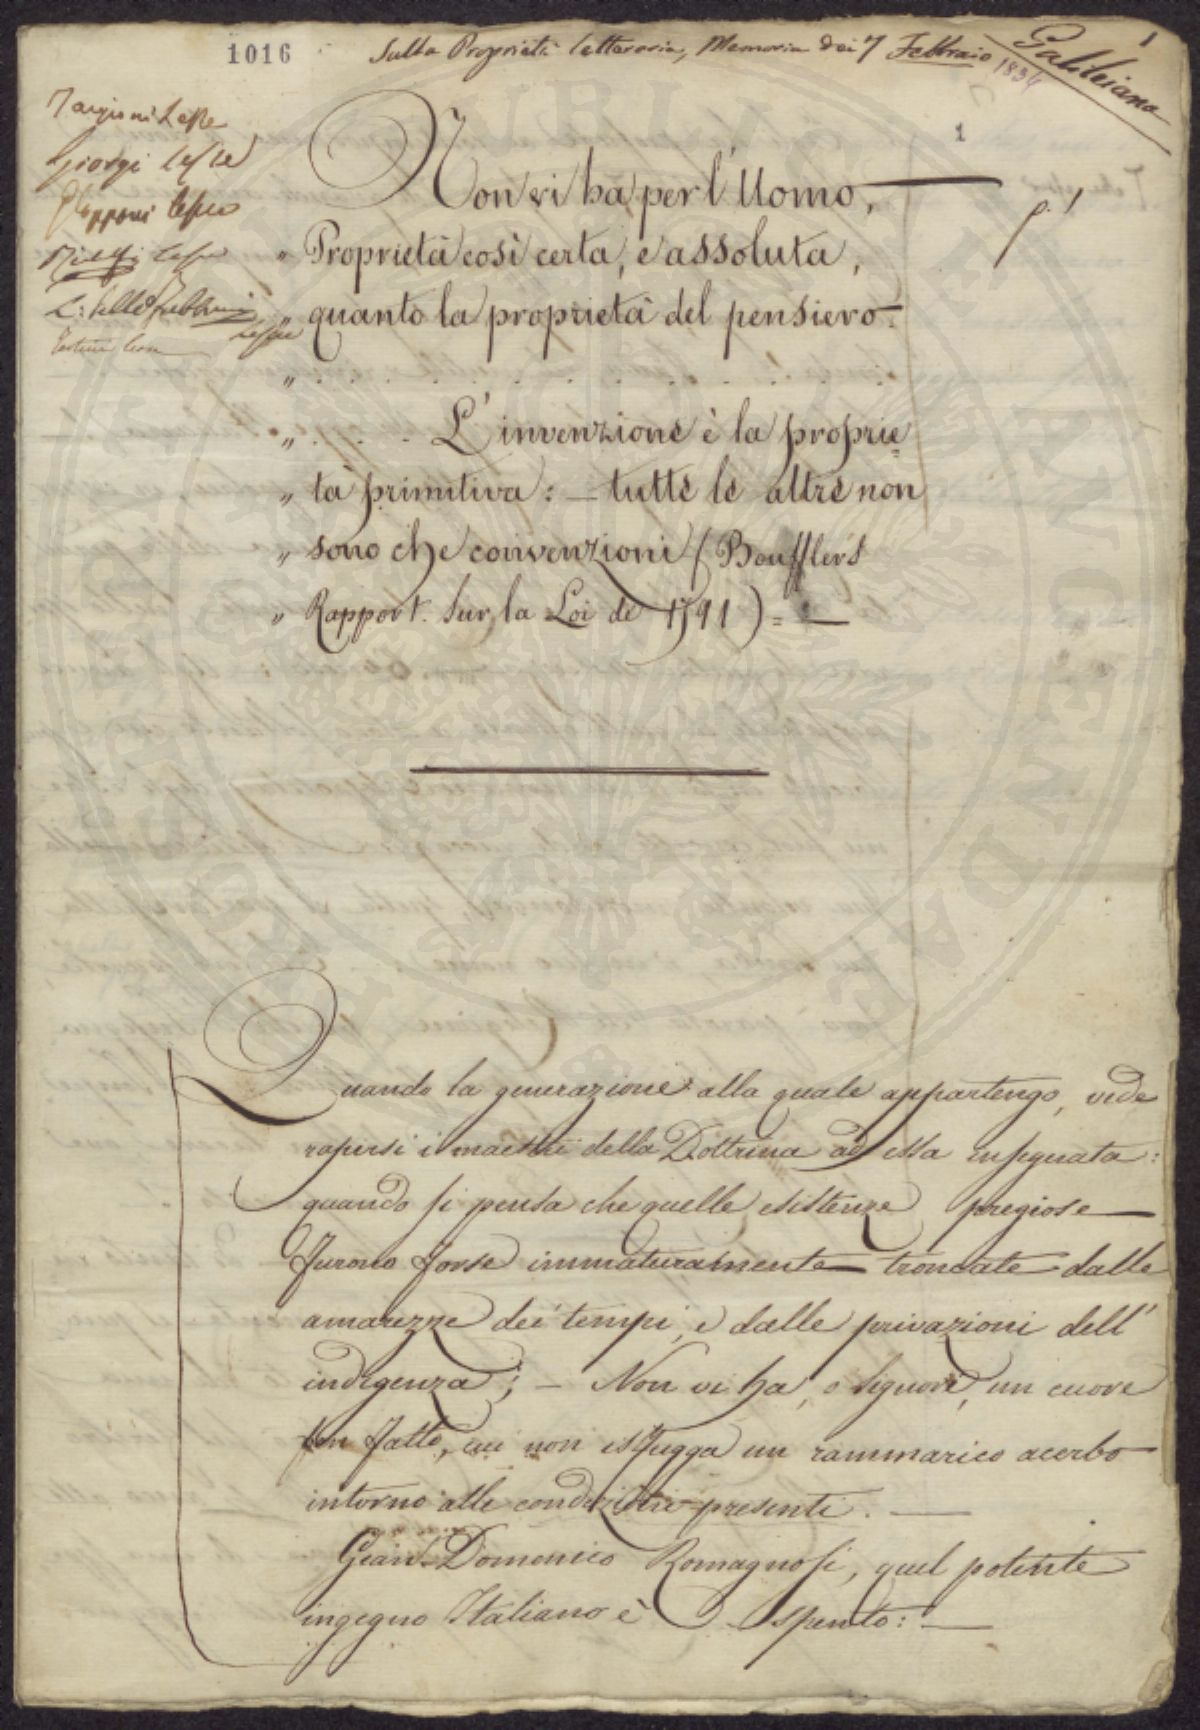 1016
Sulla Proprietà letteraria, Memoria dei 7 Febbraio
1834
Galileiana
1
1
p. 1
Giorgi lesse
Capponi lesse
Ridolfi lesse
lesse
Non vi ha per l'Uomo,
„ Proprietà così certa, e assoluta,
„ quanto la proprietà del pensiero.
„ . . . . . . . . . . . . .
„ . . . . L'invenzione è la proprie=
„ tà primitiva: — tutte le altre non
„ sono che convenzioni (Boufflers
„ Rapport. sur la Loi de 1791) = —
Quando la generazione alla quale appartengo, vede
rapirsi i maestri della Dottrina ad essa insegnata:
quando si pensa che quelle esistenze pregiose
furono forse immaturamente troncate dalle
amarezze dei tempi, e dalle privazioni dell'
indigenza; — Non vi ha, o Signori, un cuore
ben fatto, cui non isfugga un rammarico acerbo
intorno alle condizioni presenti. —
Gian Domenico Romagnosi, quel potente
ingegno Italiano è spento: —